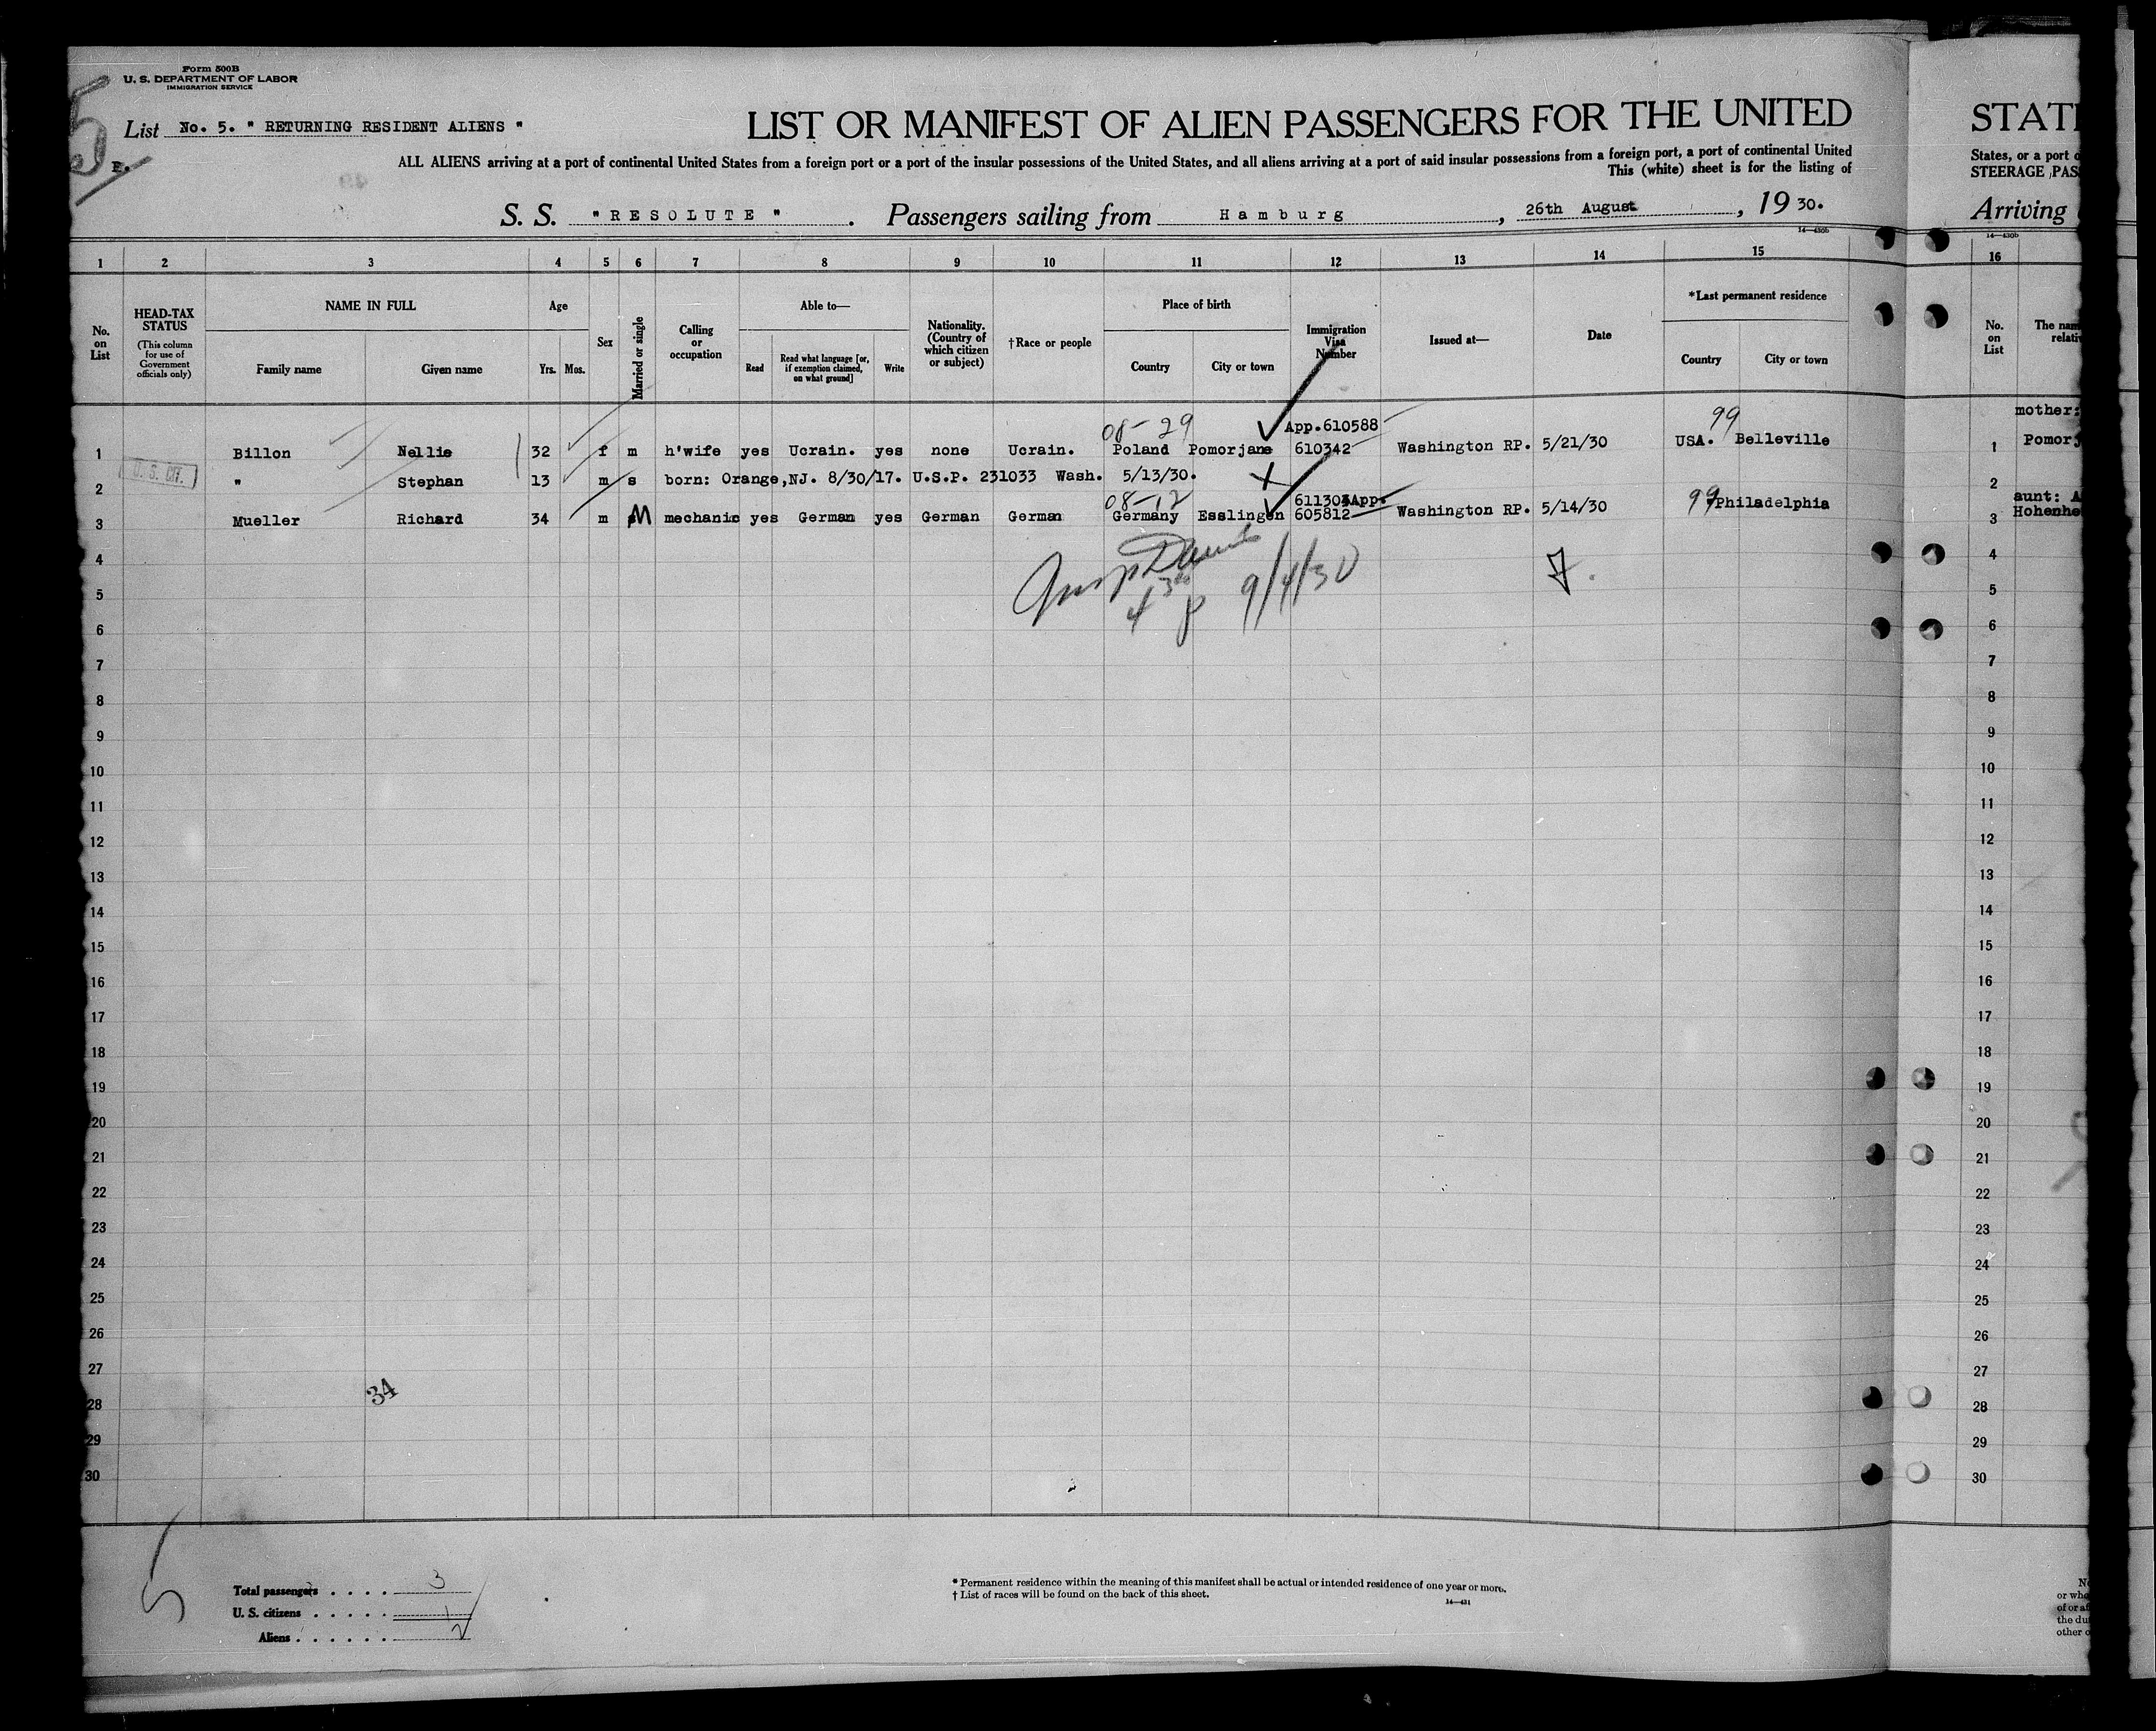 Form 500B
U. S. DEPARTMENT OF LABOR
IMMIGRATION SERVICE
5
List No. 5. " RETURNING RESIDENT ALIENS "
E.
LIST OR MANIFEST OF ALIEN PASSENGERS FOR THE UNITED
ALL ALIENS arriving at a port of continental United States from a foreign port or a port of the insular possessions of the United States, and all aliens arriving at a port of said insular possessions from a foreign port, a port of continental United
This (white) sheet is for the listing of
S. S. "RESOLUTE". Passengers sailing from Hamburg, 26th August, 1930.
14—430b
1 2 3 4 5 6 7 8 9 10 11 12 13 14 15
No. on List
HEAD-TAX STATUS
(This column for use of Government officials only)
NAME IN FULL
Family name Given name
Age
Yrs. Mos.
Sex
Married or single
Calling or occupation
Able to—
Read
Read what language [or, if exemption claimed, on what ground]
Write
Nationality. (Country of which citizen or subject)
†Race or people
Place of birth
Country City or town
Immigration Visa Number
Issued at—
Date
*Last permanent residence
Country City or town
08-29 App.610588 99
1 Billon Nellie 32 f m h'wife yes Ucrain. yes none Ucrain. Poland Pomorjane 610342 Washington RP. 5/21/30 USA. Belleville
U. S. CIT.
2 " Stephan 13 m s born: Orange,NJ. 8/30/17. U.S.P. 231033 Wash. 5/13/30.
08-12 App.
3 Mueller Richard 34 m M mechanic yes German yes German German Germany Esslingen 605812 Washington RP. 5/14/30 99 Philadelphia
4
9/4/30
5
6
7
8
9
10
11
12
13
14
15
16
17
18
19
20
21
22
23
24
25
26
27
34
28
29
30
5
Total passengers . . . . 3
U. S. citizens . . . . . 1
Aliens . . . . . . 2
* Permanent residence within the meaning of this manifest shall be actual or intended residence of one year or more.
† List of races will be found on the back of this sheet.
14—431
STAT
States, or a port o
STEERAGE PAS
Arriving
14—430b
16
No. on List
The nam
relativ
mother:
1 Pomorj
2
aunt: A
3 Hohenhe
4
5
6
7
8
9
10
11
12
13
14
15
16
17
18
19
20
21
22
23
24
25
26
27
28
29
30
or whe
of or af
the du
other o